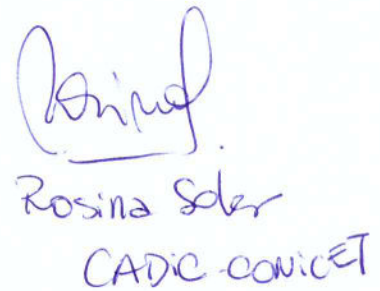 Rosina Soler
CADIC-CONICET